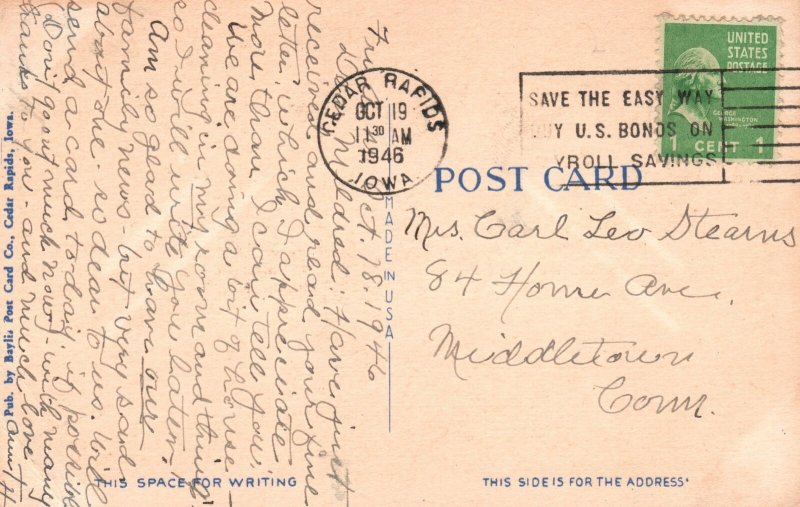 Fri. Oct. 18-1946
Dear Mildred: Have just
received and read your fine
letter, which I appreciate
more than I can tell you.
We are doing a bit of house-
cleaning in my room and things
so I will write you later.
Am so glad to have all
family news - but very sad
about the so dear to us. Will
send a card today, if possible
(Don't go out much now) - with many
thanks to you - and much love
Aunt H
Pub. by Baylis Post Card Co., Cedar Rapids, Iowa.
THIS SPACE FOR WRITING
CEDAR RAPIDS
OCT 19
11 30 AM
1946
IOWA
SAVE THE EASY WAY
BUY U.S. BONDS ON
PAYROLL SAVINGS
UNITED
STATES
POSTAGE
GEORGE
WASHINGTON
1 CENT 1
POST CARD
MADE IN USA
Mrs. Carl Leo Stearns
84 Home Ave.
Middletown
Conn.
THIS SIDE IS FOR THE ADDRESS